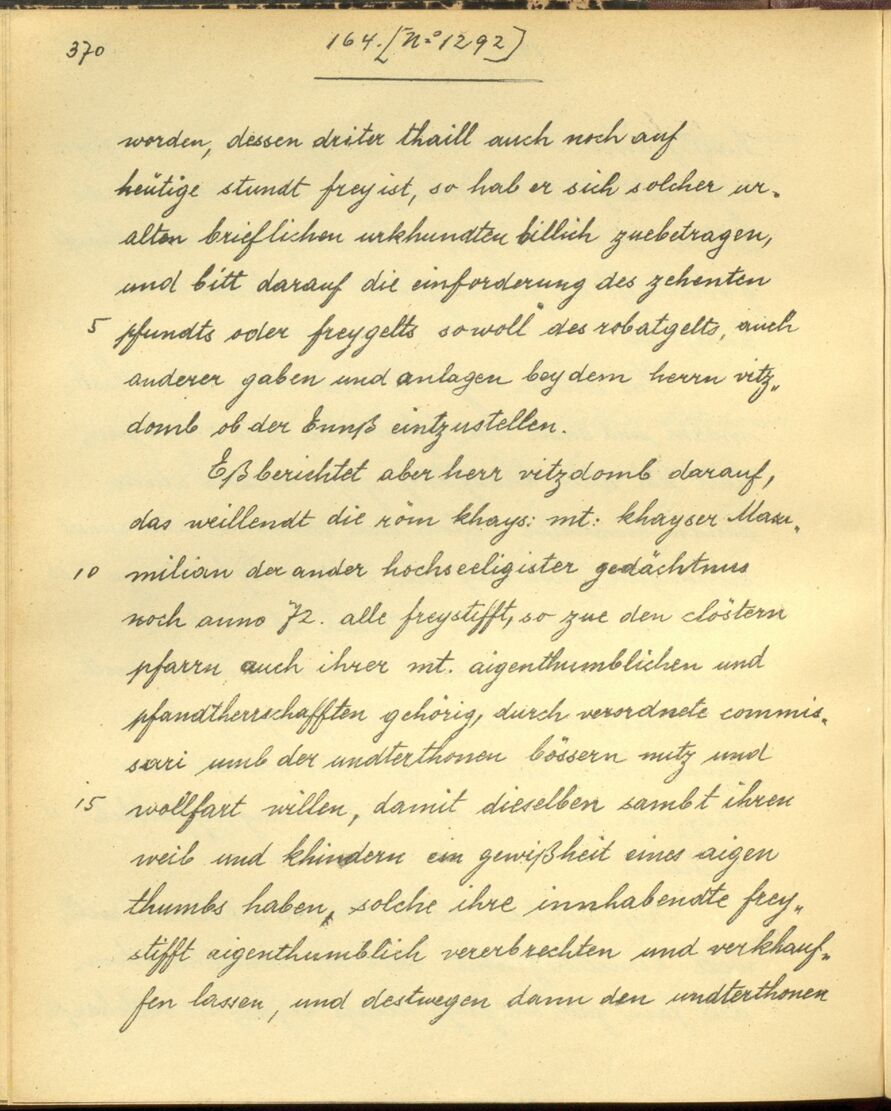 370
164. [No 1292]
worden, dessen driter thaill auch noch auf
heütige stundt frey ist, so hab er sich solcher ur-
alten brieflichen urkhundten billich zuebetragen,
und bitt darauf die einforderung des zehenten
5 pfundts oder freygelts sowoll des robatgelts, auch
anderer gaben und anlagen bey dem herrn vitz„
domb ob der Ennß eintzustellen.
Eß berichtet aber herr vitzdomb darauf,
das weillendt die röm khays: mt: khayser Maxi„
10 milian der ander hochseeligister gedächtnus
noch anno 72. alle freystifft, so zue den clöstern
pfarrn auch ihrer mt. aigenthumblichen und
pfandtherrschafften gehörig, durch verordnete commis„
sari umb der undterthonen bössern nutz und
15 wollfart willen, damit dieselben sambt ihren
weib und khindern ein gewißheit eines aigen
thumbs haben, solche ihre innhabendte frey„
stifft aigenthumblich vererbrechten und verkhauf„
fen lassen, und destwegen dann den undterthonen